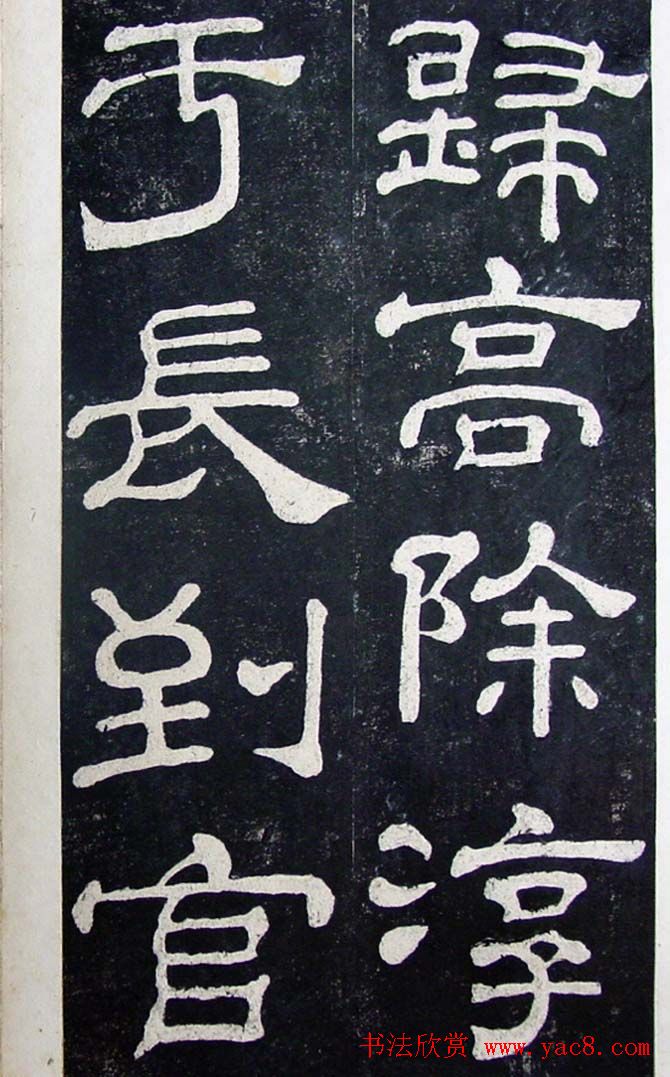 歸高除淳
于長到官
书法欣赏 www.yac8.com